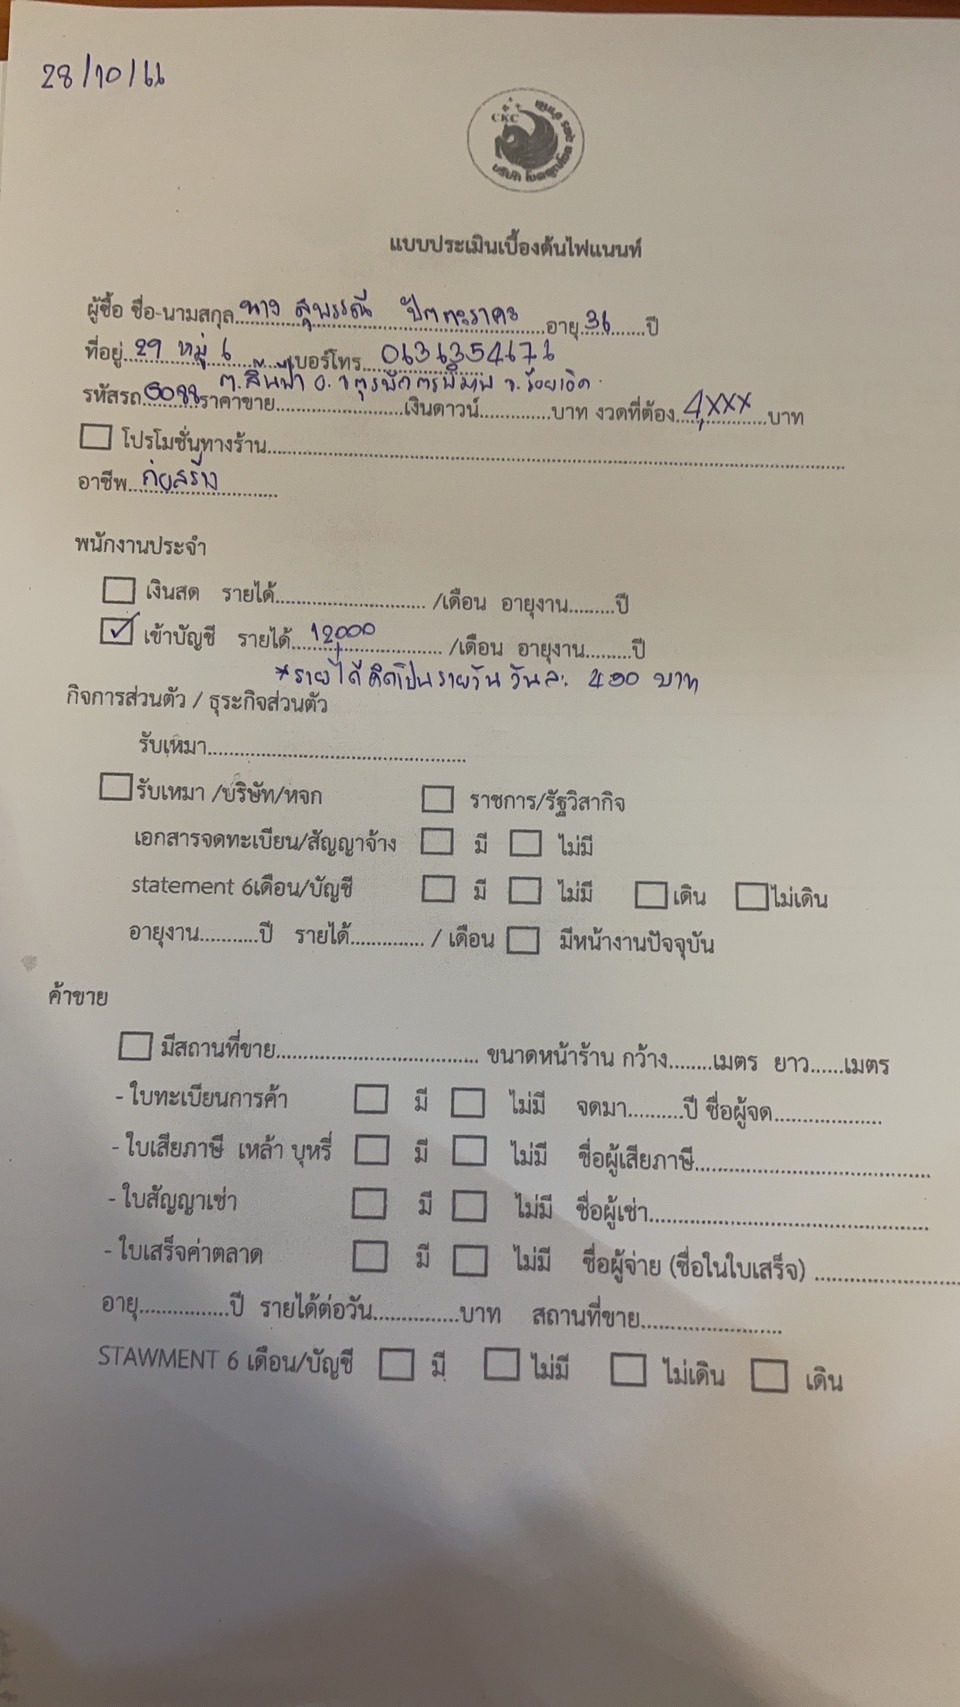 28/10/66
CKC
แบบประเมินเบื้องต้นไฟแนนท์
ผู้ซื้อ ชื่อ-นามสกุล..นาง สุพรรณี ปัตตะราคะ...อายุ.36......ปี
ที่อยู่.29 หมู่ 6........เบอร์โทร..0636354676
ต.ลิ้นฟ้า อ.จตุรพักตรพิมาน จ.ร้อยเอ็ด.
รหัสรถ.5088ราคาขาย......................เงินดาวน์............บาท งวดที่ต้อง.4,xxx..บาท
โปรโมชั่นทางร้าน................................................................................
อาชีพ..ก่อสร้าง..........
พนักงานประจำ
เงินสด รายได้............................ /เดือน อายุงาน.........ปี
เข้าบัญชี รายได้...12,000............ /เดือน อายุงาน.........ปี
*รายได้คิดเป็นรายวัน วันละ 400 บาท
กิจการส่วนตัว / ธุระกิจส่วนตัว
รับเหมา................................................
รับเหมา /บริษัท/หจก ราชการ/รัฐวิสากิจ
เอกสารจดทะเบียน/สัญญาจ้าง มี ไม่มี
statement 6เดือน/บัญชี มี ไม่มี เดิน ไม่เดิน
อายุงาน...........ปี รายได้.............. / เดือน มีหน้างานปัจจุบัน
ค้าขาย
มีสถานที่ขาย...................................... ขนาดหน้าร้าน กว้าง........เมตร ยาว......เมตร
- ใบทะเบียนการค้า มี ไม่มี จดมา..........ปี ชื่อผู้จด....................
- ใบเสียภาษี เหล้า บุหรี่ มี ไม่มี ชื่อผู้เสียภาษี............................................
- ใบสัญญาเช่า มี ไม่มี ชื่อผู้เช่า....................................................
- ใบเสร็จค่าตลาด มี ไม่มี ชื่อผู้จ่าย (ชื่อในใบเสร็จ) ............................
อายุ.................ปี รายได้ต่อวัน................บาท สถานที่ขาย..........................
STAWMENT 6 เดือน/บัญชี มี ไม่มี ไม่เดิน เดิน